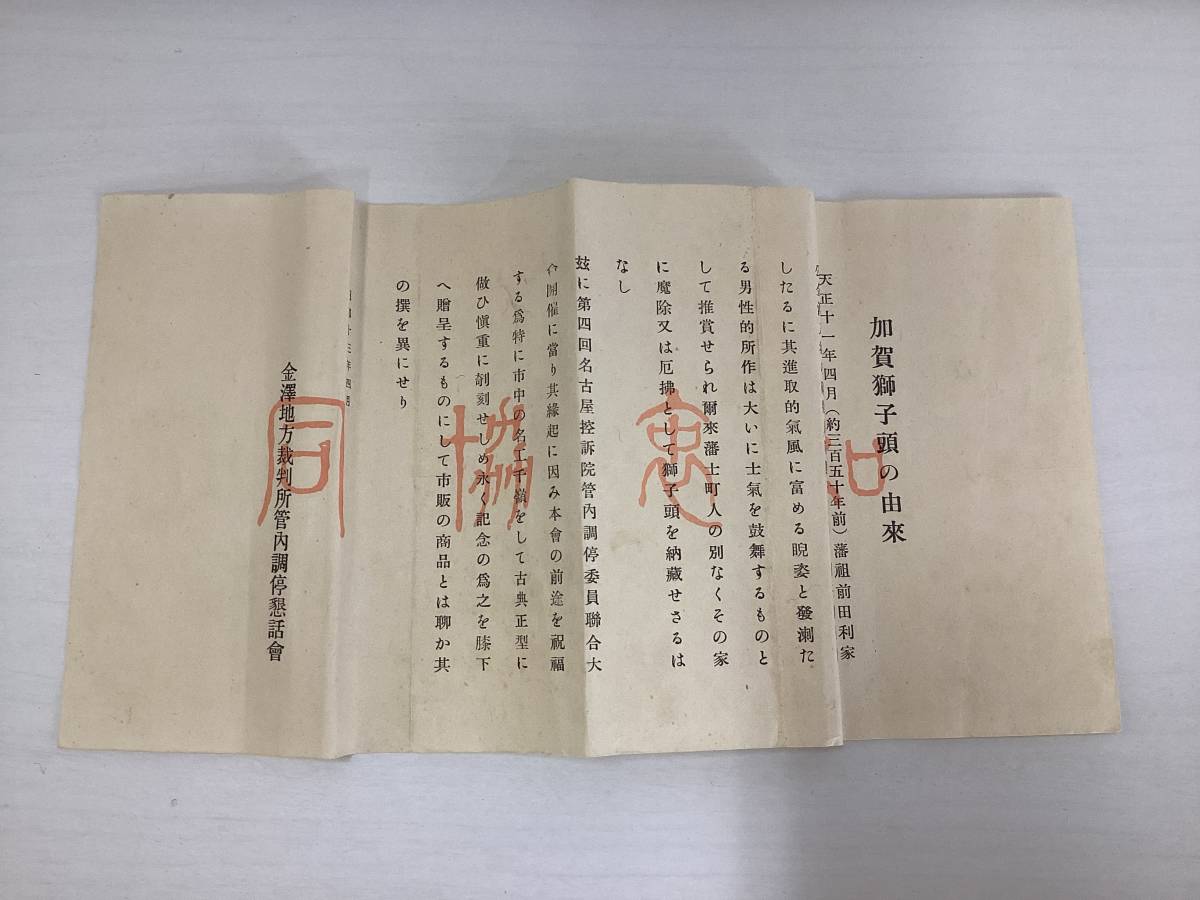 加賀獅子頭の由來
天正十一年四月(約三百五十年前)藩祖前田利家
したるに其進取的氣風に富める睨姿と發溂た
る男性的所作は大いに士氣を鼓舞するものと
して推賞せられ爾來藩士町人の別なくその家
に魔除又は厄拂として獅子頭を納藏せさるは
なし
玆に第四回名古屋控訴院管內調停委員聯合大
開催に當り其緣起に因み本會の前途を祝福
する爲特に市中の名工をして古典正型に
倣ひ愼重に刻せしめ永く記念の爲之を膝下
へ贈呈するものにして市販の商品とは聊か其
の撰を異にせり
金澤地方裁判所管內調停懇話會
和
衷
協
同